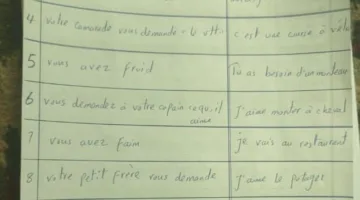 4 votre camarade vous demande c'est une course à vélo
5 vous avez froid Tu as besoin d'un manteau
6 vous demandez à votre copain ce qu'il J'aime monter à cheval
aime
7 vous avez faim je vais au restaurant
8 votre petit frère vous demande J'aime le potager